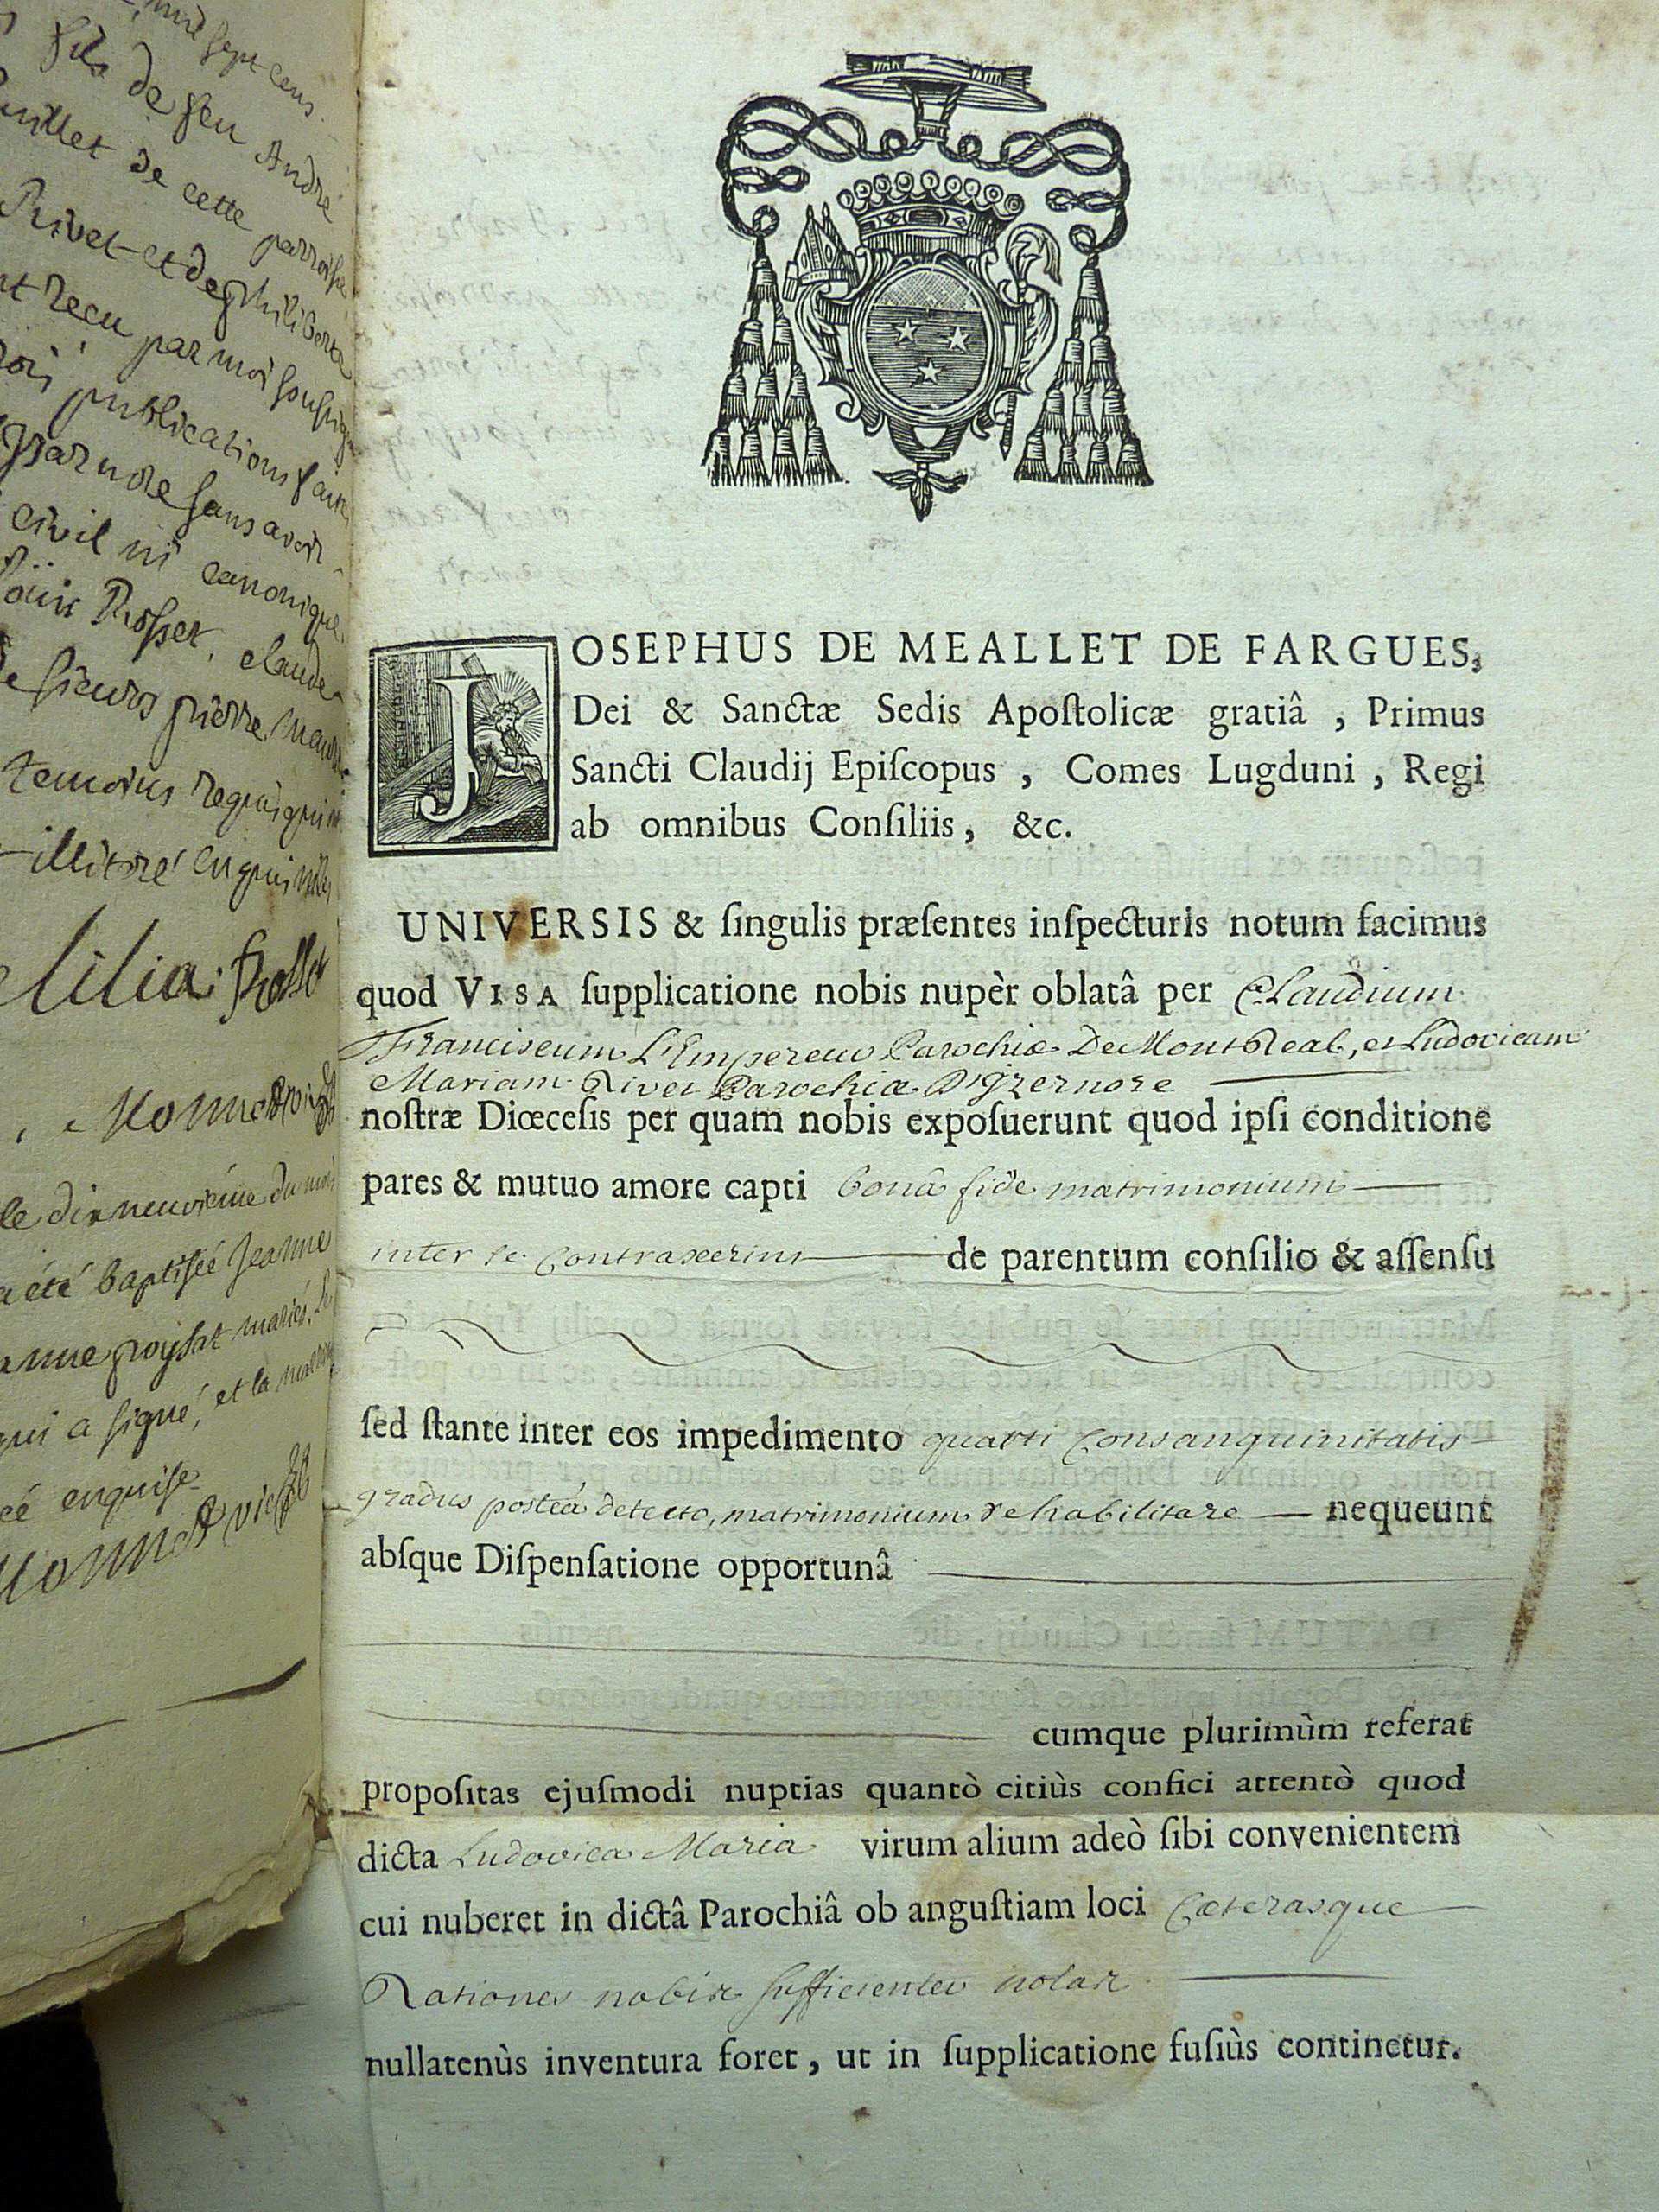 mil sept cens
fils de feu André
de cette parroisse
Rivet et de philiberte
reçu par moi soussigné
publications faites
sans avoir
civil ni canonique
Rosset, claude
sieurs pierre
temoins requis qui
illitré enquis
JOSEPHUS DE MEALLET DE FARGUES,
Dei & Sanctæ Sedis Apoſtolicæ gratiâ, Primus
Sancti Claudij Epiſcopus, Comes Lugduni, Regi
ab omnibus Conſiliis, &c.
UNIVERSIS & ſingulis præſentes inſpecturis notum facimus
quod VISA ſupplicatione nobis nupèr oblatâ per Claudium
Franciscum L'Empereur Parochiæ De Mont Real, et Ludovicam
Mariam Rivet Parochiæ D'Izernore
noſtræ Diœceſis per quam nobis expoſuerunt quod ipſi conditione
pares & mutuo amore capti bonâ fide matrimonium
inter se Contraxerint de parentum conſilio & aſſenſu
ſed ſtante inter eos impedimento quarti Consanguinitatis
gradus posteà detecto, matrimonium rehabilitare nequeunt
abſque Diſpenſatione opportunâ
cumque plurimùm referat
propoſitas ejuſmodi nuptias quantò citiùs confici attentò quod
dicta Ludovica Maria virum alium adeò ſibi convenientem
cui nuberet in dictâ Parochiâ ob anguſtiam loci Cæterasque
Rationes nobis sufficienter notas
nullatenùs inventura foret, ut in ſupplicatione fuſiùs continetur.
le dix neuvieme du mois
a été baptisée Jeanne
mariés
qui a signé, et la
enquise